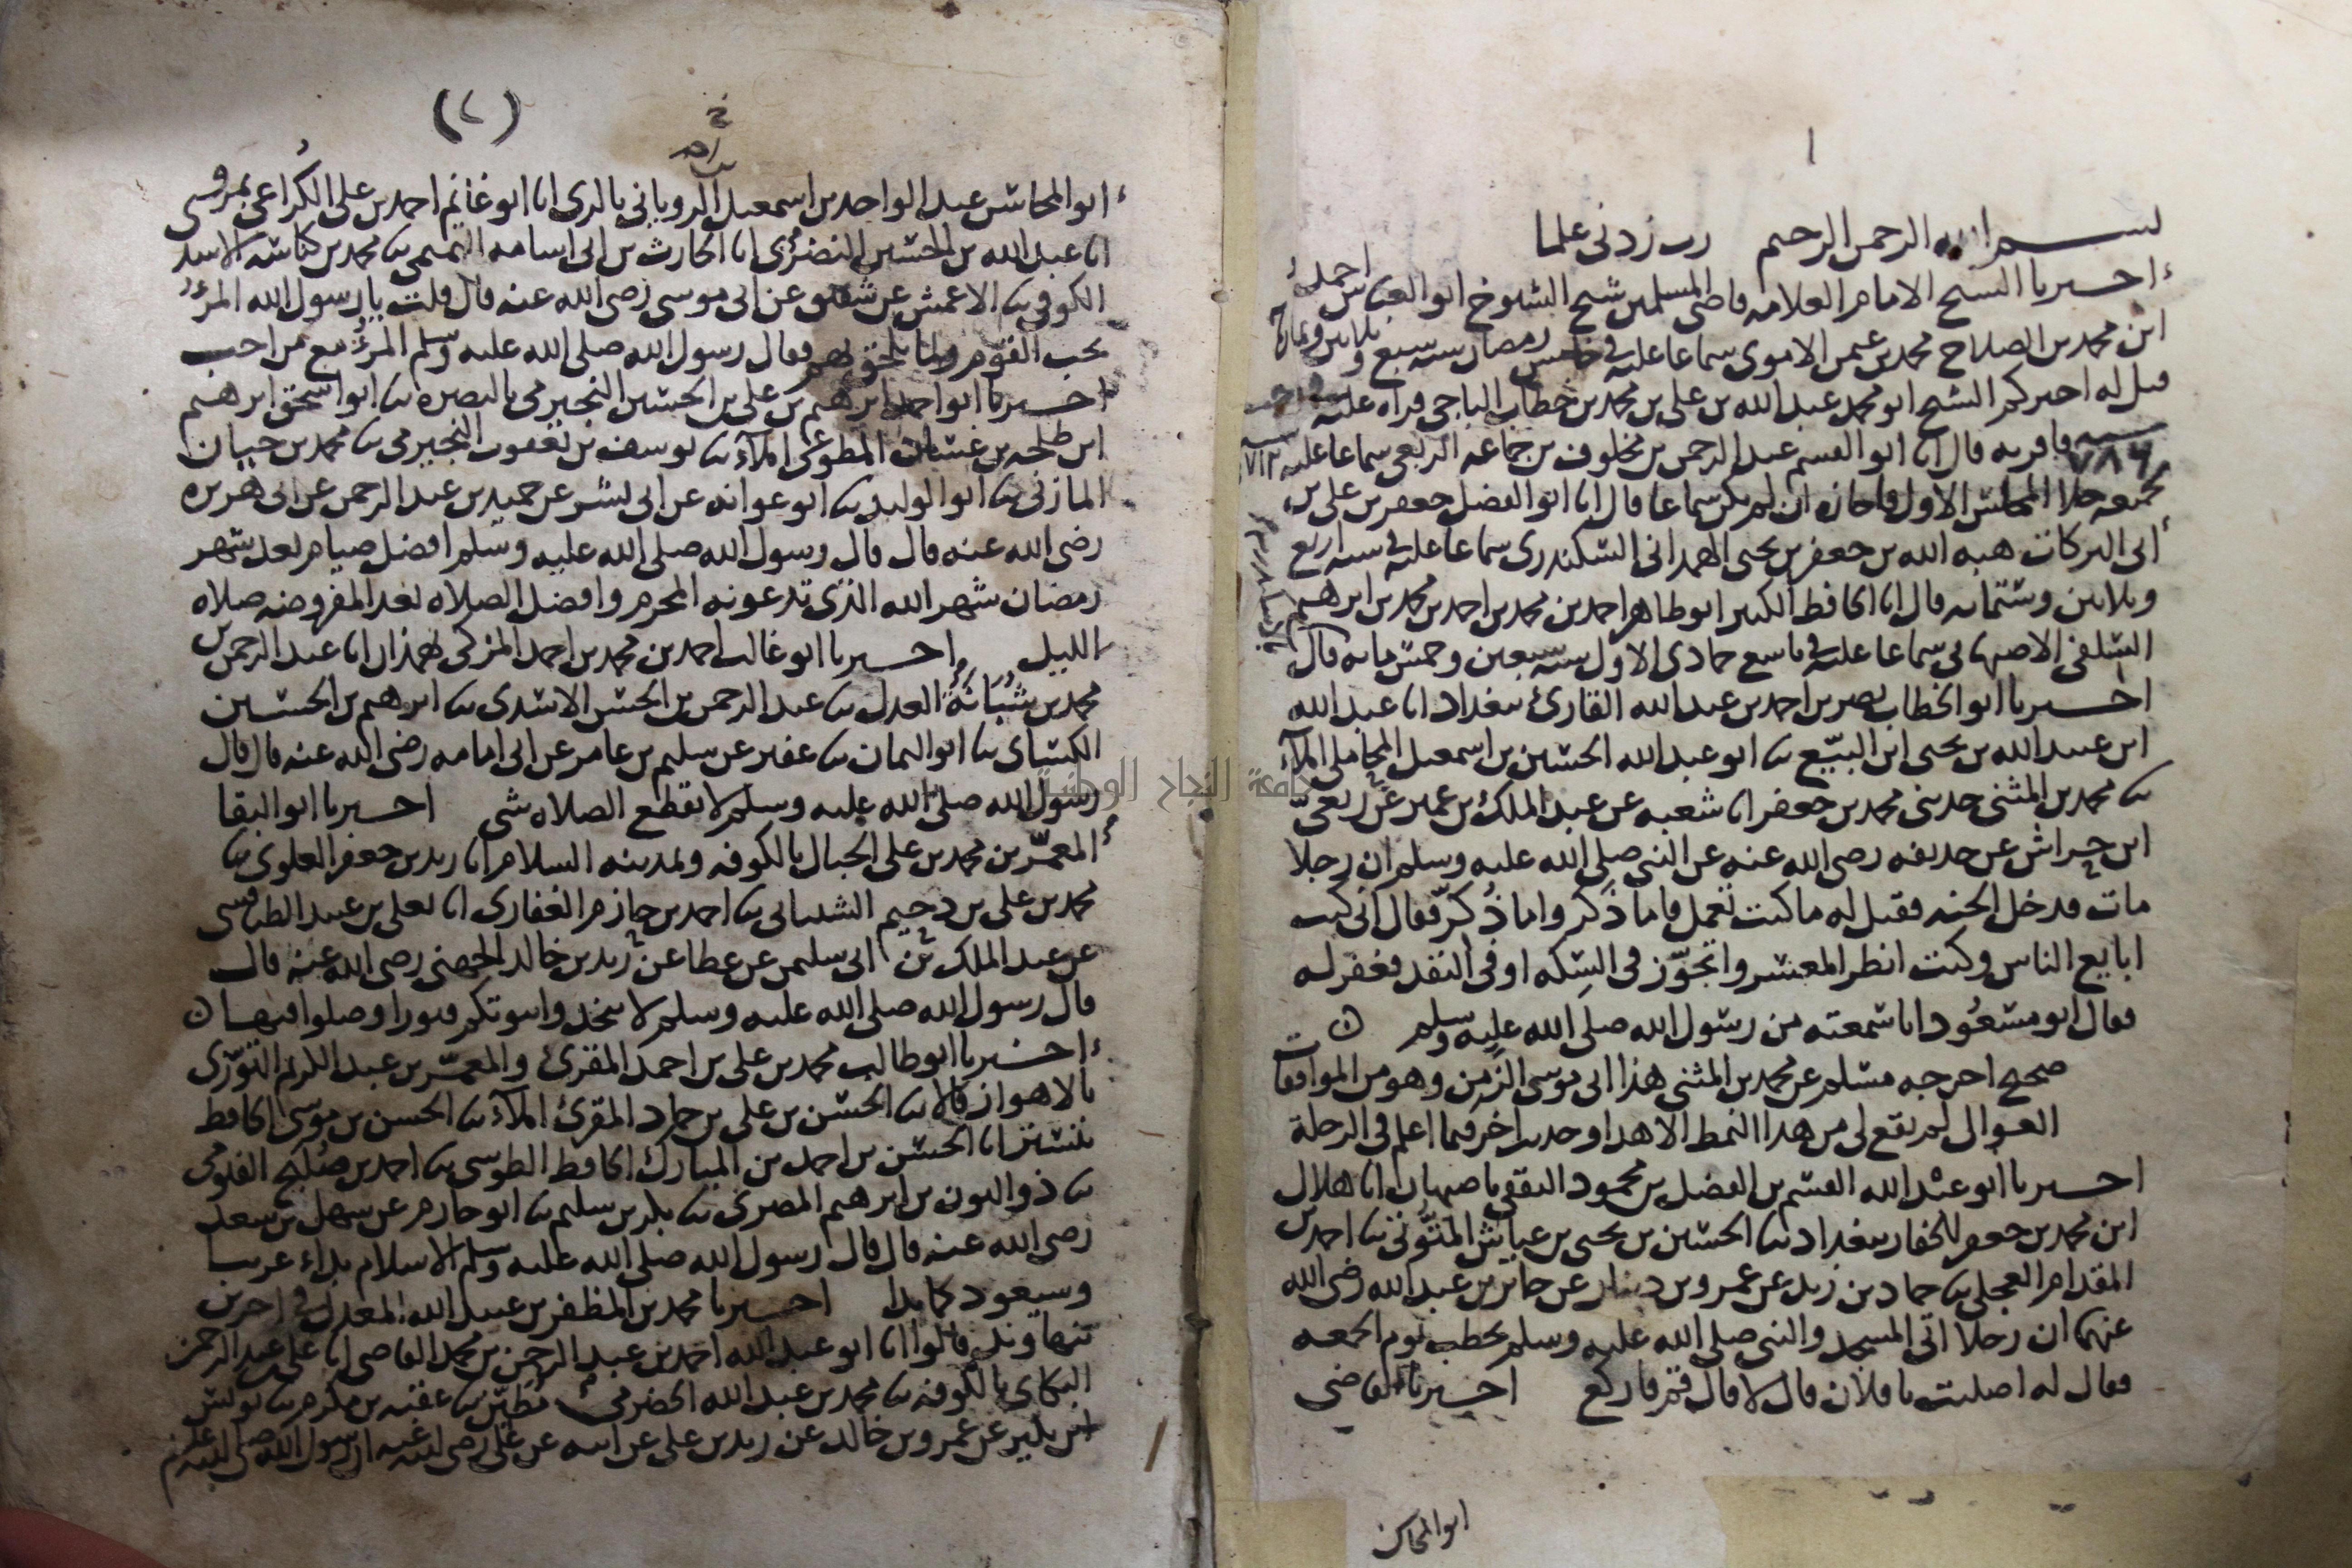 ١
بسم الله الرحمن الرحيم رب زدني علما
اخبرنا الشيخ الامام العلامه قاضي المسلمين شيخ الشيوخ ابو العباس احمد
ابن محمد بن الصلاح محمد بن عمر الاموي سماعا عليه في خامس رمضان سنه سبع وثلاثين وثمان
قيل له اخبركم الشيخ ابو محمد عبد الله بن علي بن محمد بن خطاب الباجي قراه عليه
فاقر به قال انا ابو القسم عبد الرحمن بن مخلوف بن جماعه الربعي سماعا عليه
لجميعه خلا المجلس الاول فاجازه ان لم يكن سماعا قال انا ابو الفضل جعفر بن علي بن
ابي البركات هبه الله بن جعفر بن يحيى الهمداني السكندري سماعا عليه في سنه اربع
وثلاثين وستمائه قال انا الحافظ الكبير ابو طاهر احمد بن محمد بن احمد بن محمد بن ابرهيم
السلفي الاصبهاني سماعا عليه في تاسع جمادى الاول سنه سبعين وخمس مائه قال
اخبرنا ابو الخطاب نصر بن احمد بن عبد الله القارئ ببغداد انا عبد الله
ابن عبيد الله بن يحيى ابن البيّع ثنا ابو عبد الله الحسين بن اسمعيل المحاملي املآء
ثنا محمد بن المثنى حدثني محمد بن جعفر انا شعبه عن عبد الملك بن عمير عن ربعيّ
ابن حراش عن حذيفه رضي الله عنه عن النبي صلى الله عليه وسلم ان رجلا
مات فدخل الجنه فقيل له ما كنت تعمل فاما ذكر واما ذُكّر فقال اني كنت
ابايع الناس وكنت انظر المعسر واتجوّز في السِكه او في النقد فغفر له
فقال ابو مسعُود انا سمعته من رسول الله صلى الله عليه وسلم
صحيح اخرجه مسلم عن محمد بن المثنى هذا ابي موسى الزَمِن وهو من الموافقات
العوال لم يقع لي من هذا النمط الا هذا وحديث اخر فيما اعلم في الرحلة
اخبرنا ابو عبد الله القسم بن الفضل بن محمود الثقفي باصبهان انا هلال
ابن محمد بن جعفر الحفار ببغداد ثنا الحسين بن يحيى بن عياش المتّوثي ثنا احمد بن
المقدام العجلي ثنا حماد بن زيد عن عمرو بن دينار عن جابر بن عبد الله رضي الله
عنهما ان رجلا اتى المسجد والنبي صلى الله عليه وسلم يخطب يوم الجمعه
فقال له اصليت يا فلان قال لا قال قم فاركع اخبرنا القاضي
ابو المحاسن
(٢)
ابو المحاسن عبد الواحد بن اسمعيل الروياني بالري انا ابو غانم احمد بن علي الكُراعي بمرو
انا عبد الله بن الحسين النضري انا الحارث بن ابي اسامه التميمي ثنا محمد بن كناسه الاسدي
الكوفي ثنا الاعمش عن شقيق عن ابي موسى رضي الله عنه قال قلت يا رسول الله المرء
يحب القوم ولما يلحق بهم فقال رسول الله صلى الله عليه وسلم المرءُ مع من احب
اخبرنا ابو احمد ابرهيم بن علي بن الحسين النجيرمي بالبصره ثنا ابو اسحق ابرهيم
ابن طلحه بن غسان المطوعي املآء ثنا يوسف بن يعقوب النجيرمي ثنا محمد بن حيان
المازني ثنا ابو الوليد ثنا ابو عوانه عن ابي بشر عن حميد بن عبد الرحمن عن ابي هريره
رضي الله عنه قال قال رسول الله صلى الله عليه وسلم افضل صيام بعد شهر
رمضان شهر الله الذي تدعونه المحرم وافضل الصلاه بعد المفروضه صلاه
الليل اخبرنا ابو غالب احمد بن محمد بن احمد المزكي بهمذان انا عبد الرحمن بن
محمد بن شُبَانَةَ العدل ثنا عبد الرحمن بن الحسن الاسدي ثنا ابرهيم بن الحسين
الكسائي ثنا ابو اليمان ثنا عفير عن سليم بن عامر عن ابي امامه رضي الله عنه قال قال
رسول الله صلى الله عليه وسلم لا يقطع الصلاه شي اخبرنا ابو البقا
المعمّر بن محمد بن علي الحبال بالكوفه وبمدينه السلام انا زيد بن جعفر العلوي ثنا
محمد بن علي بن دحيم الشيباني ثنا احمد بن حازم الغفاري انا يعلى بن عبيد الطنافسي
عن عبد الملك بن ابي سليمن عن عطا عن زيد بن خالد الجهني رضي الله عنه قال
قال رسول الله صلى الله عليه وسلم لا تتخذوا بيوتكم قبورا وصلوا فيها
اخبرنا ابو طالب محمد بن علي بن احمد المقرئ والمعمّر بن عبد الكريم التوّزي
بالاهواز قالا ثنا الحسن بن علي بن حماد المقرئ املآء ثنا الحسن بن موسى الحافظ
بتستر انا الحسن بن احمد بن المبارك الحافظ الطوسي ثنا احمد بن صُليح الفيومي
ثنا ذو النون بن ابرهيم المصري ثنا بكر بن سليم ثنا ابو حازم عن سهل بن سعد
رضي الله عنه قال قال رسول الله صلى الله عليه وسلم الاسلام بداء غريبا
وسيعود كما بدا اخبرنا محمد بن المظفر بن عبيد الله المعدل في اخرين
بنهاوند قالوا انا ابو عبد الله احمد بن عبد الرحمن بن محمد القاضي انا علي بن عبد الرحمن
البكائي بالكوفه ثنا محمد بن عبد الله الحضرمي مُطيّن ثنا عقبه بن مكرم ثنا يونس
ابن بكير عن عمرو بن خالد عن زيد بن علي عن ابيه عن علي رضي الله عنه ان رسول الله صلى الله عليه وسلم
جامعة النجاح الوطنية